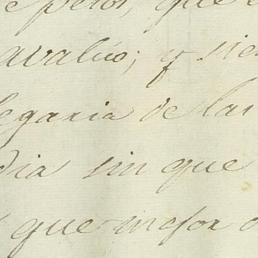 e pesos, que e
avalúo; y sien
legaria de las
dia sin que
que mejor